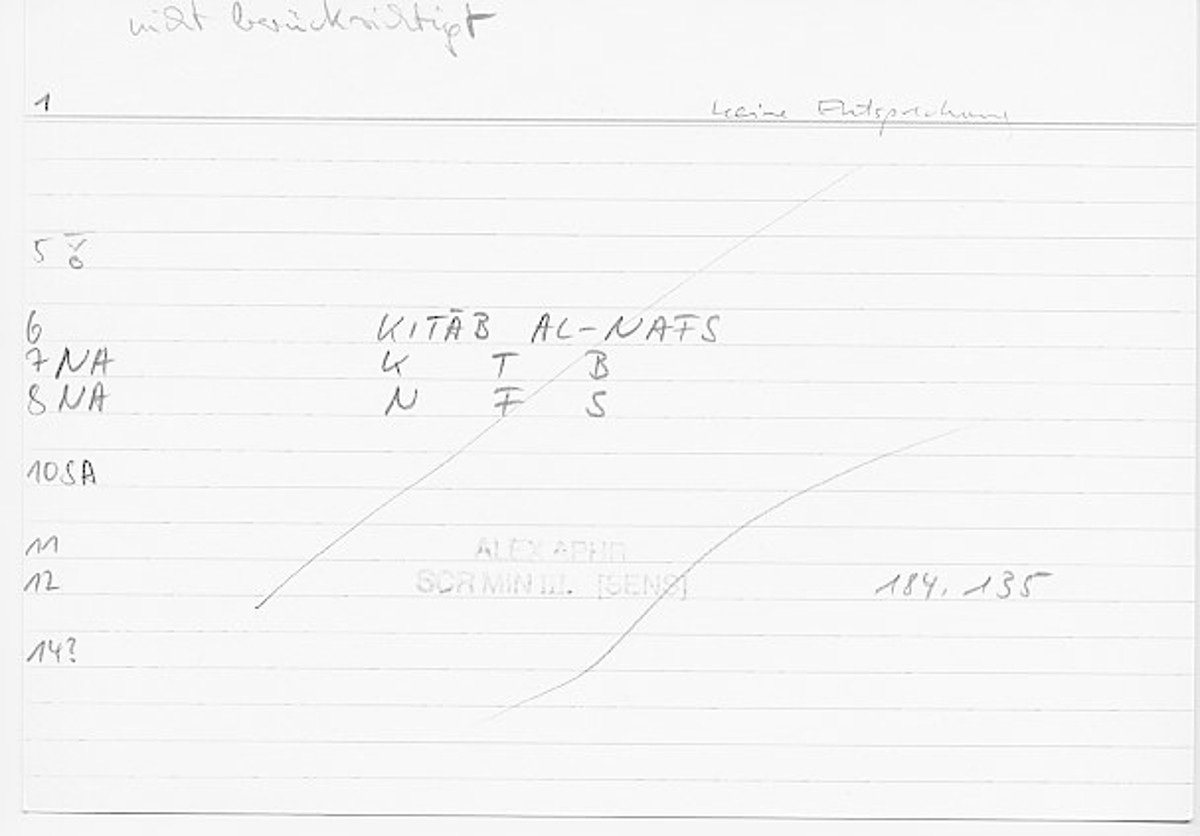 nicht berücksichtigt
1 keine Entsprechung
5
6 KITĀB AL-NAFS
7 NA K T B
8 NA N F S
10 SA
11 ALEX APHR
12 SCR MIN III. [SENS] 184, 135
14?